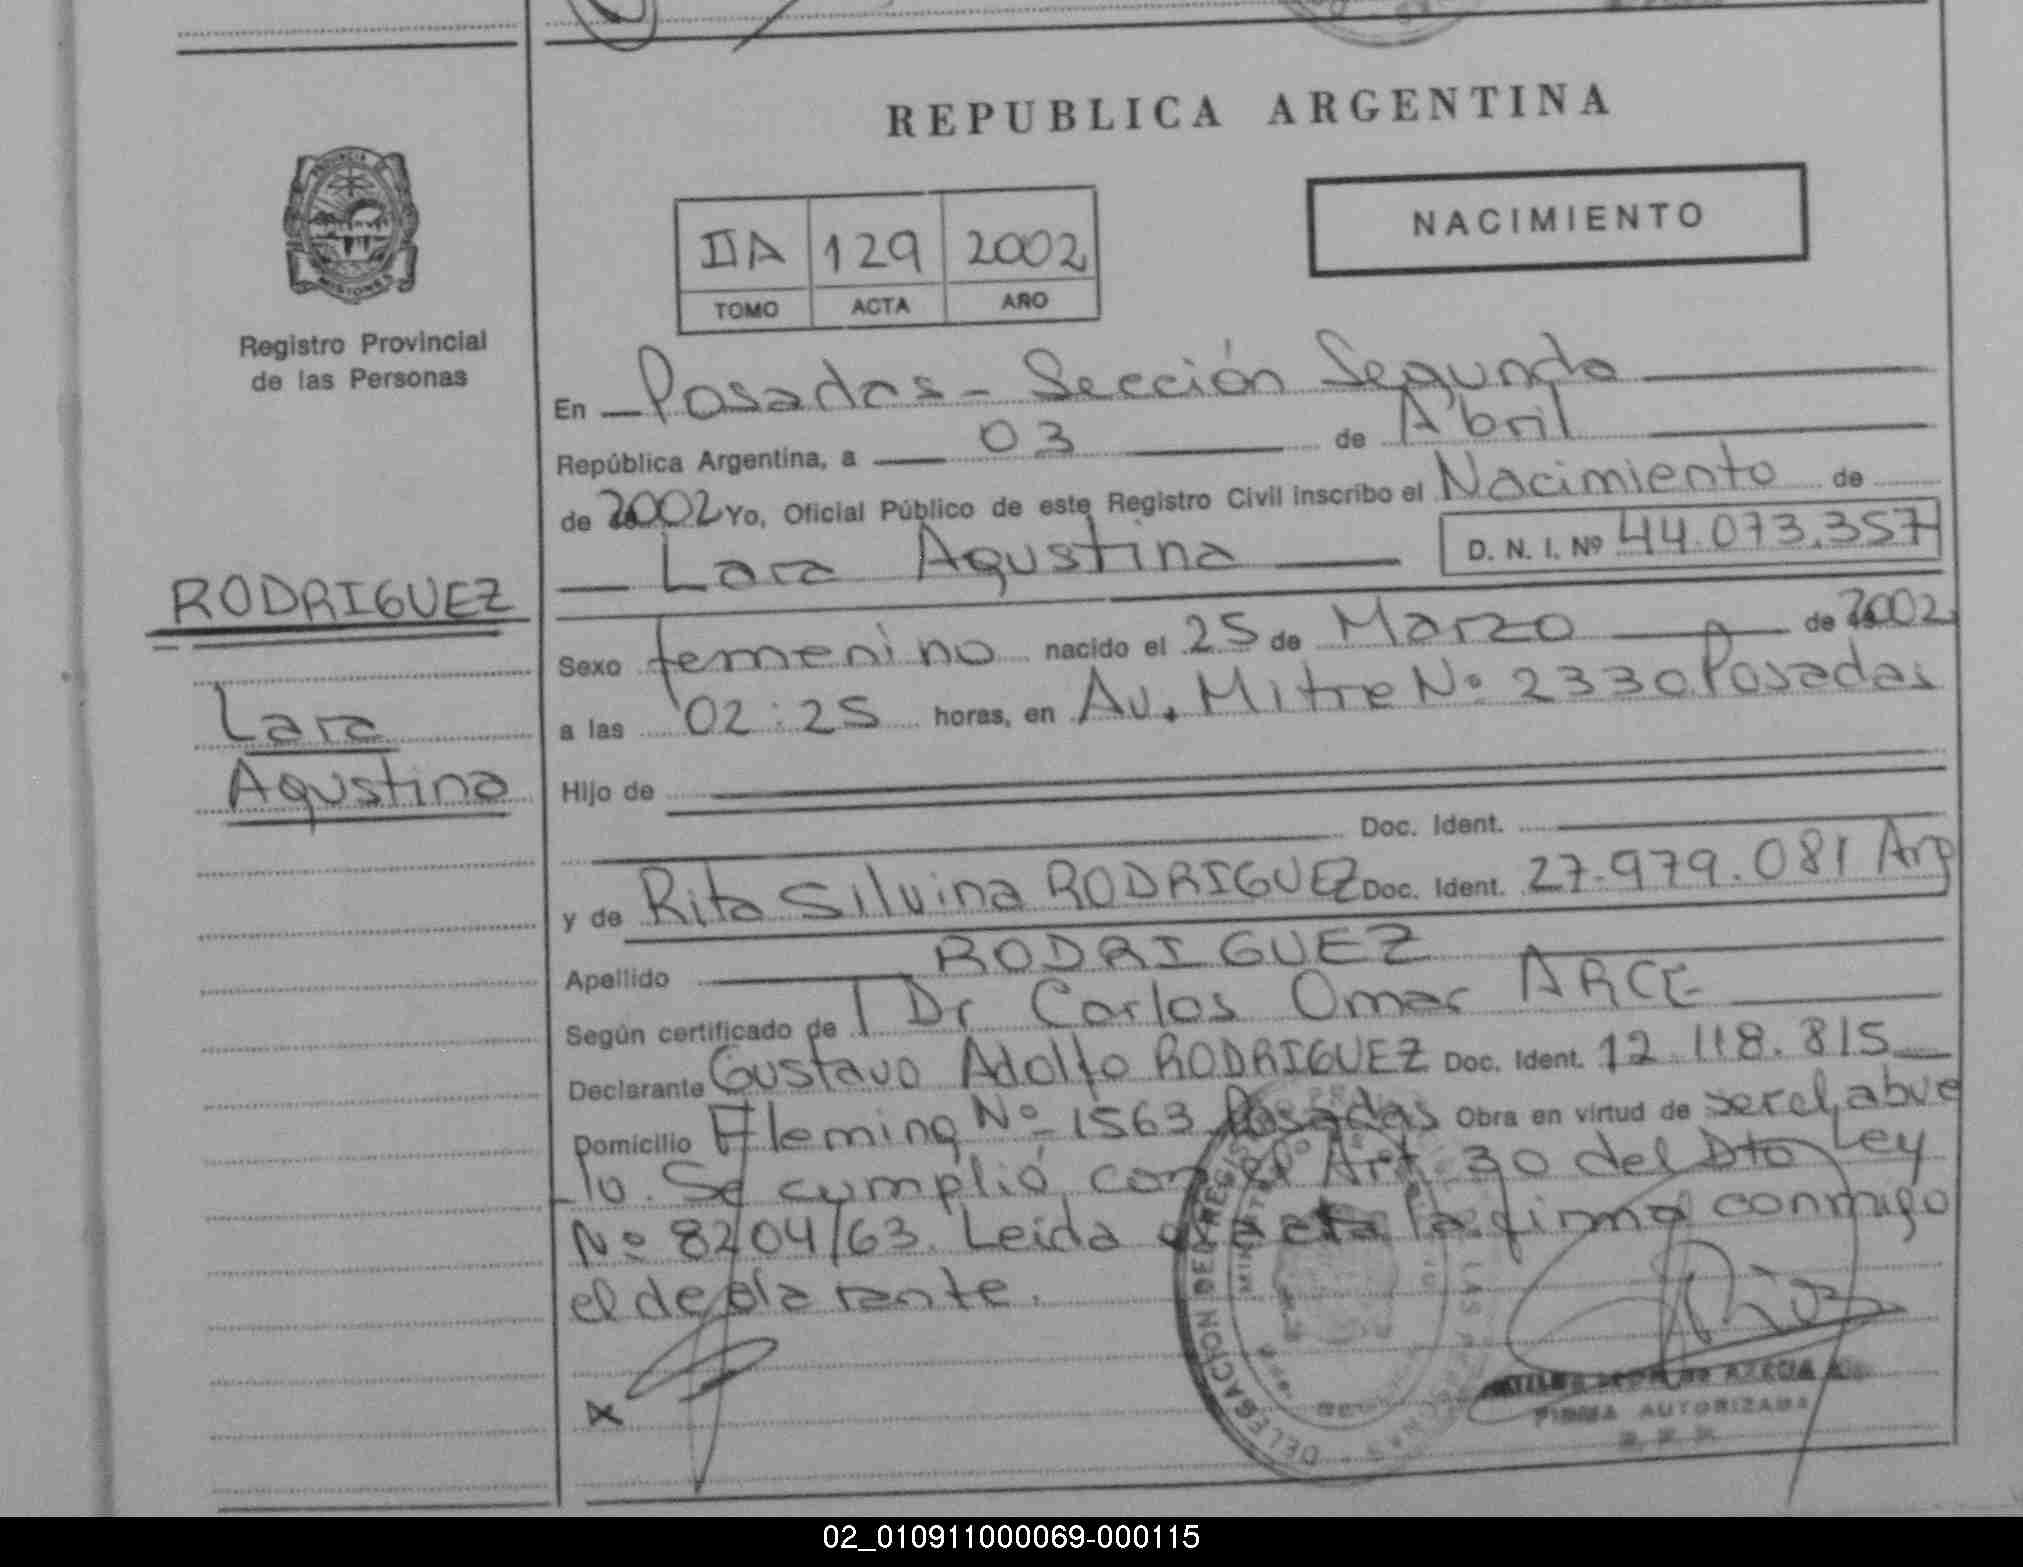 REPUBLICA ARGENTINA
NACIMIENTO
IIA 129 2002
TOMO ACTA AÑO
PROVINCIA
MISIONES
Registro Provincial
de las Personas
RODRIGUEZ
Lara
Agustina
En Posadas - Sección Segunda
República Argentina, a 03 de Abril
de 2002 Yo, Oficial Público de este Registro Civil inscribo el Nacimiento de
Lara Agustina D. N. I. Nº 44.073.357
Sexo femenino nacido el 25 de Marzo de 2002
a las 02:25 horas, en Av. Mitre Nº 2330 Posadas
Hijo de
Doc. Ident.
y de Rita Silvina RODRIGUEZ Doc. Ident. 27.979.081 Arg
Apellido RODRIGUEZ
Según certificado de Dr Carlos Omar ARCE
Declarante Gustavo Adolfo RODRIGUEZ Doc. Ident. 12.118.815
Domicilio Fleming Nº 1563 Posadas Obra en virtud de ser el abue
lo. Se cumplió con el Art. 30 del Dto Ley
Nº 8204/63. Leida el acta la firma conmigo
el declarante.
DELEGACION DEL REGIS
LAS PERSONAS
FIRMA AUTORIZADA
02_010911000069-000115